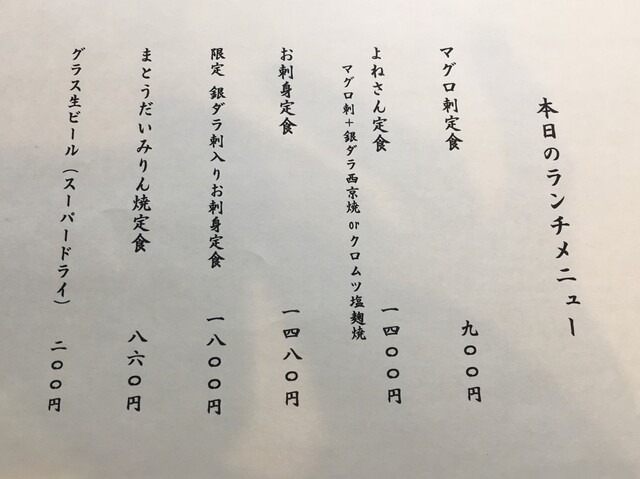 本日のランチメニュー
マグロ刺定食 九〇〇円
よねさん定食 一四〇〇円
マグロ刺+銀ダラ西京焼 or クロムツ塩麹焼
お刺身定食 一四八〇円
限定 銀ダラ刺入りお刺身定食 一八〇〇円
まとうだいみりん焼定食 八六〇円
グラス生ビール(スーパードライ) 二〇〇円